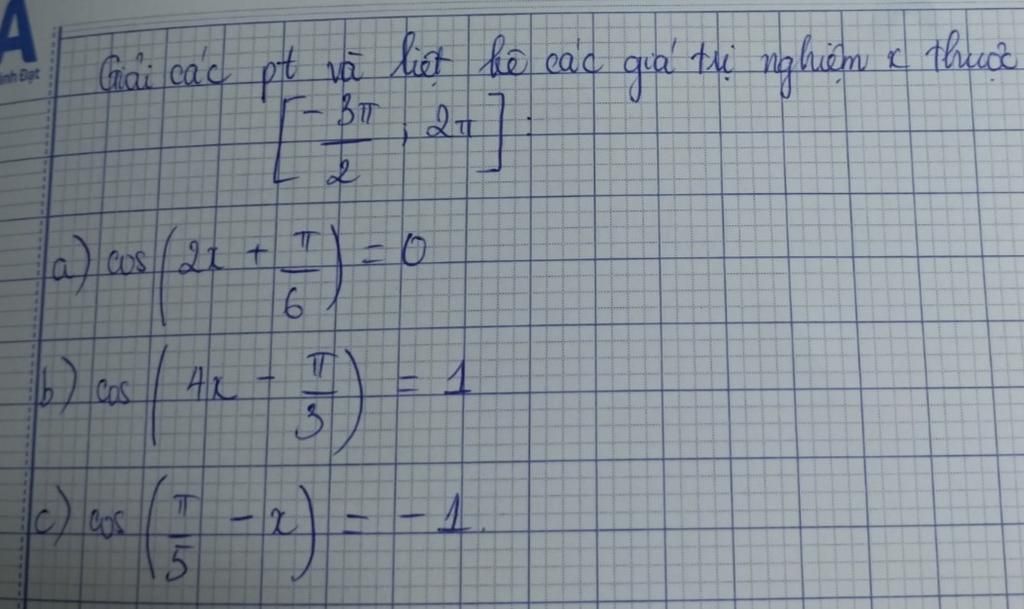 A
inh Đạt
Giải các pt và liệt kê các giá trị nghiệm x thuộc
[-3π/2 ; 2π] :
a) cos(2x + π/6) = 0
b) cos(4x - π/3) = 1
c) cos(π/5 - x) = -1.